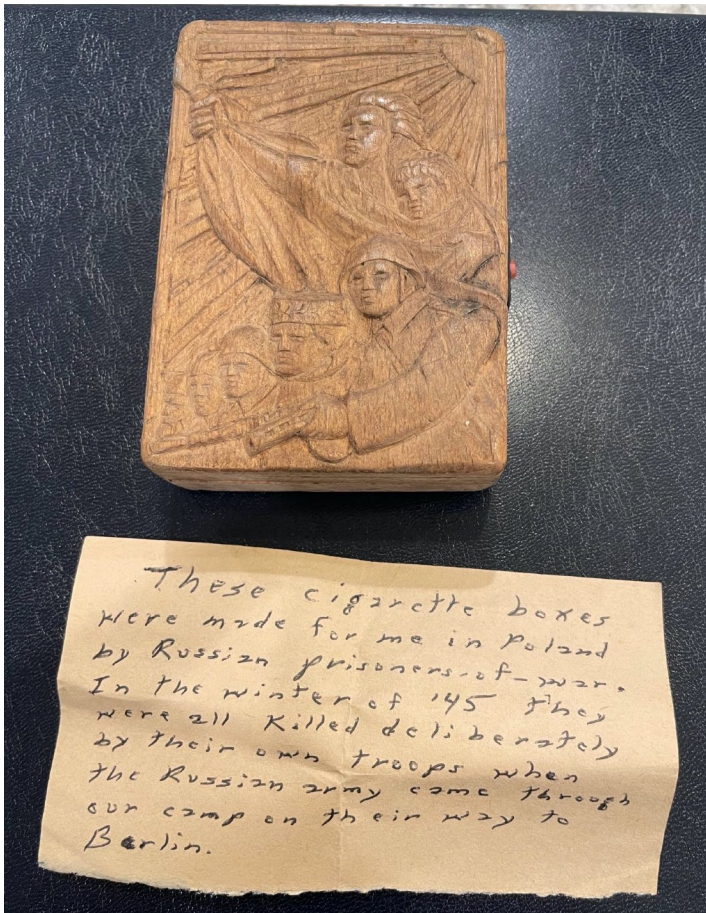 These cigarette boxes
were made for me in Poland
by Russian prisoners-of-war.
In the winter of '45 they
were all killed deliberately
by their own troops when
the Russian army came through
our camp on their way to
Berlin.